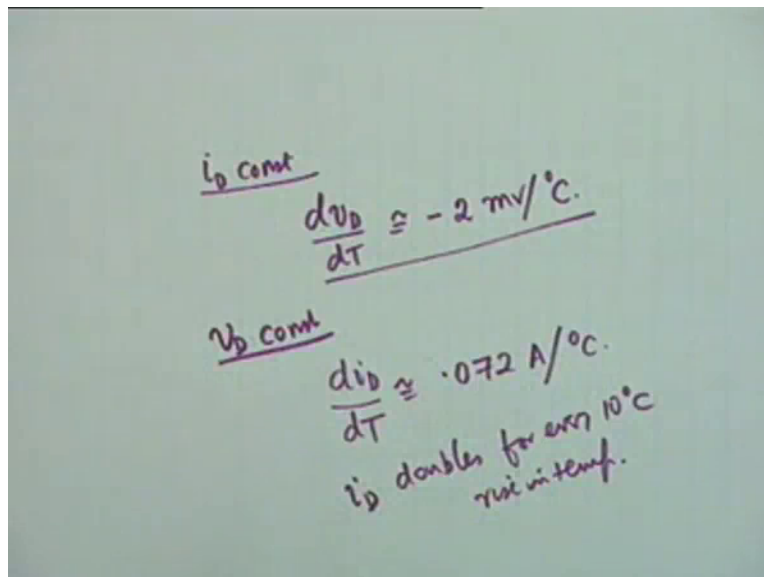 i_D const
dv_D/dT ≅ - 2 mv/°C.
v_D const
di_D/dT ≅ .072 A/°C.
i_D doubles for every 10°C
rise in temp.